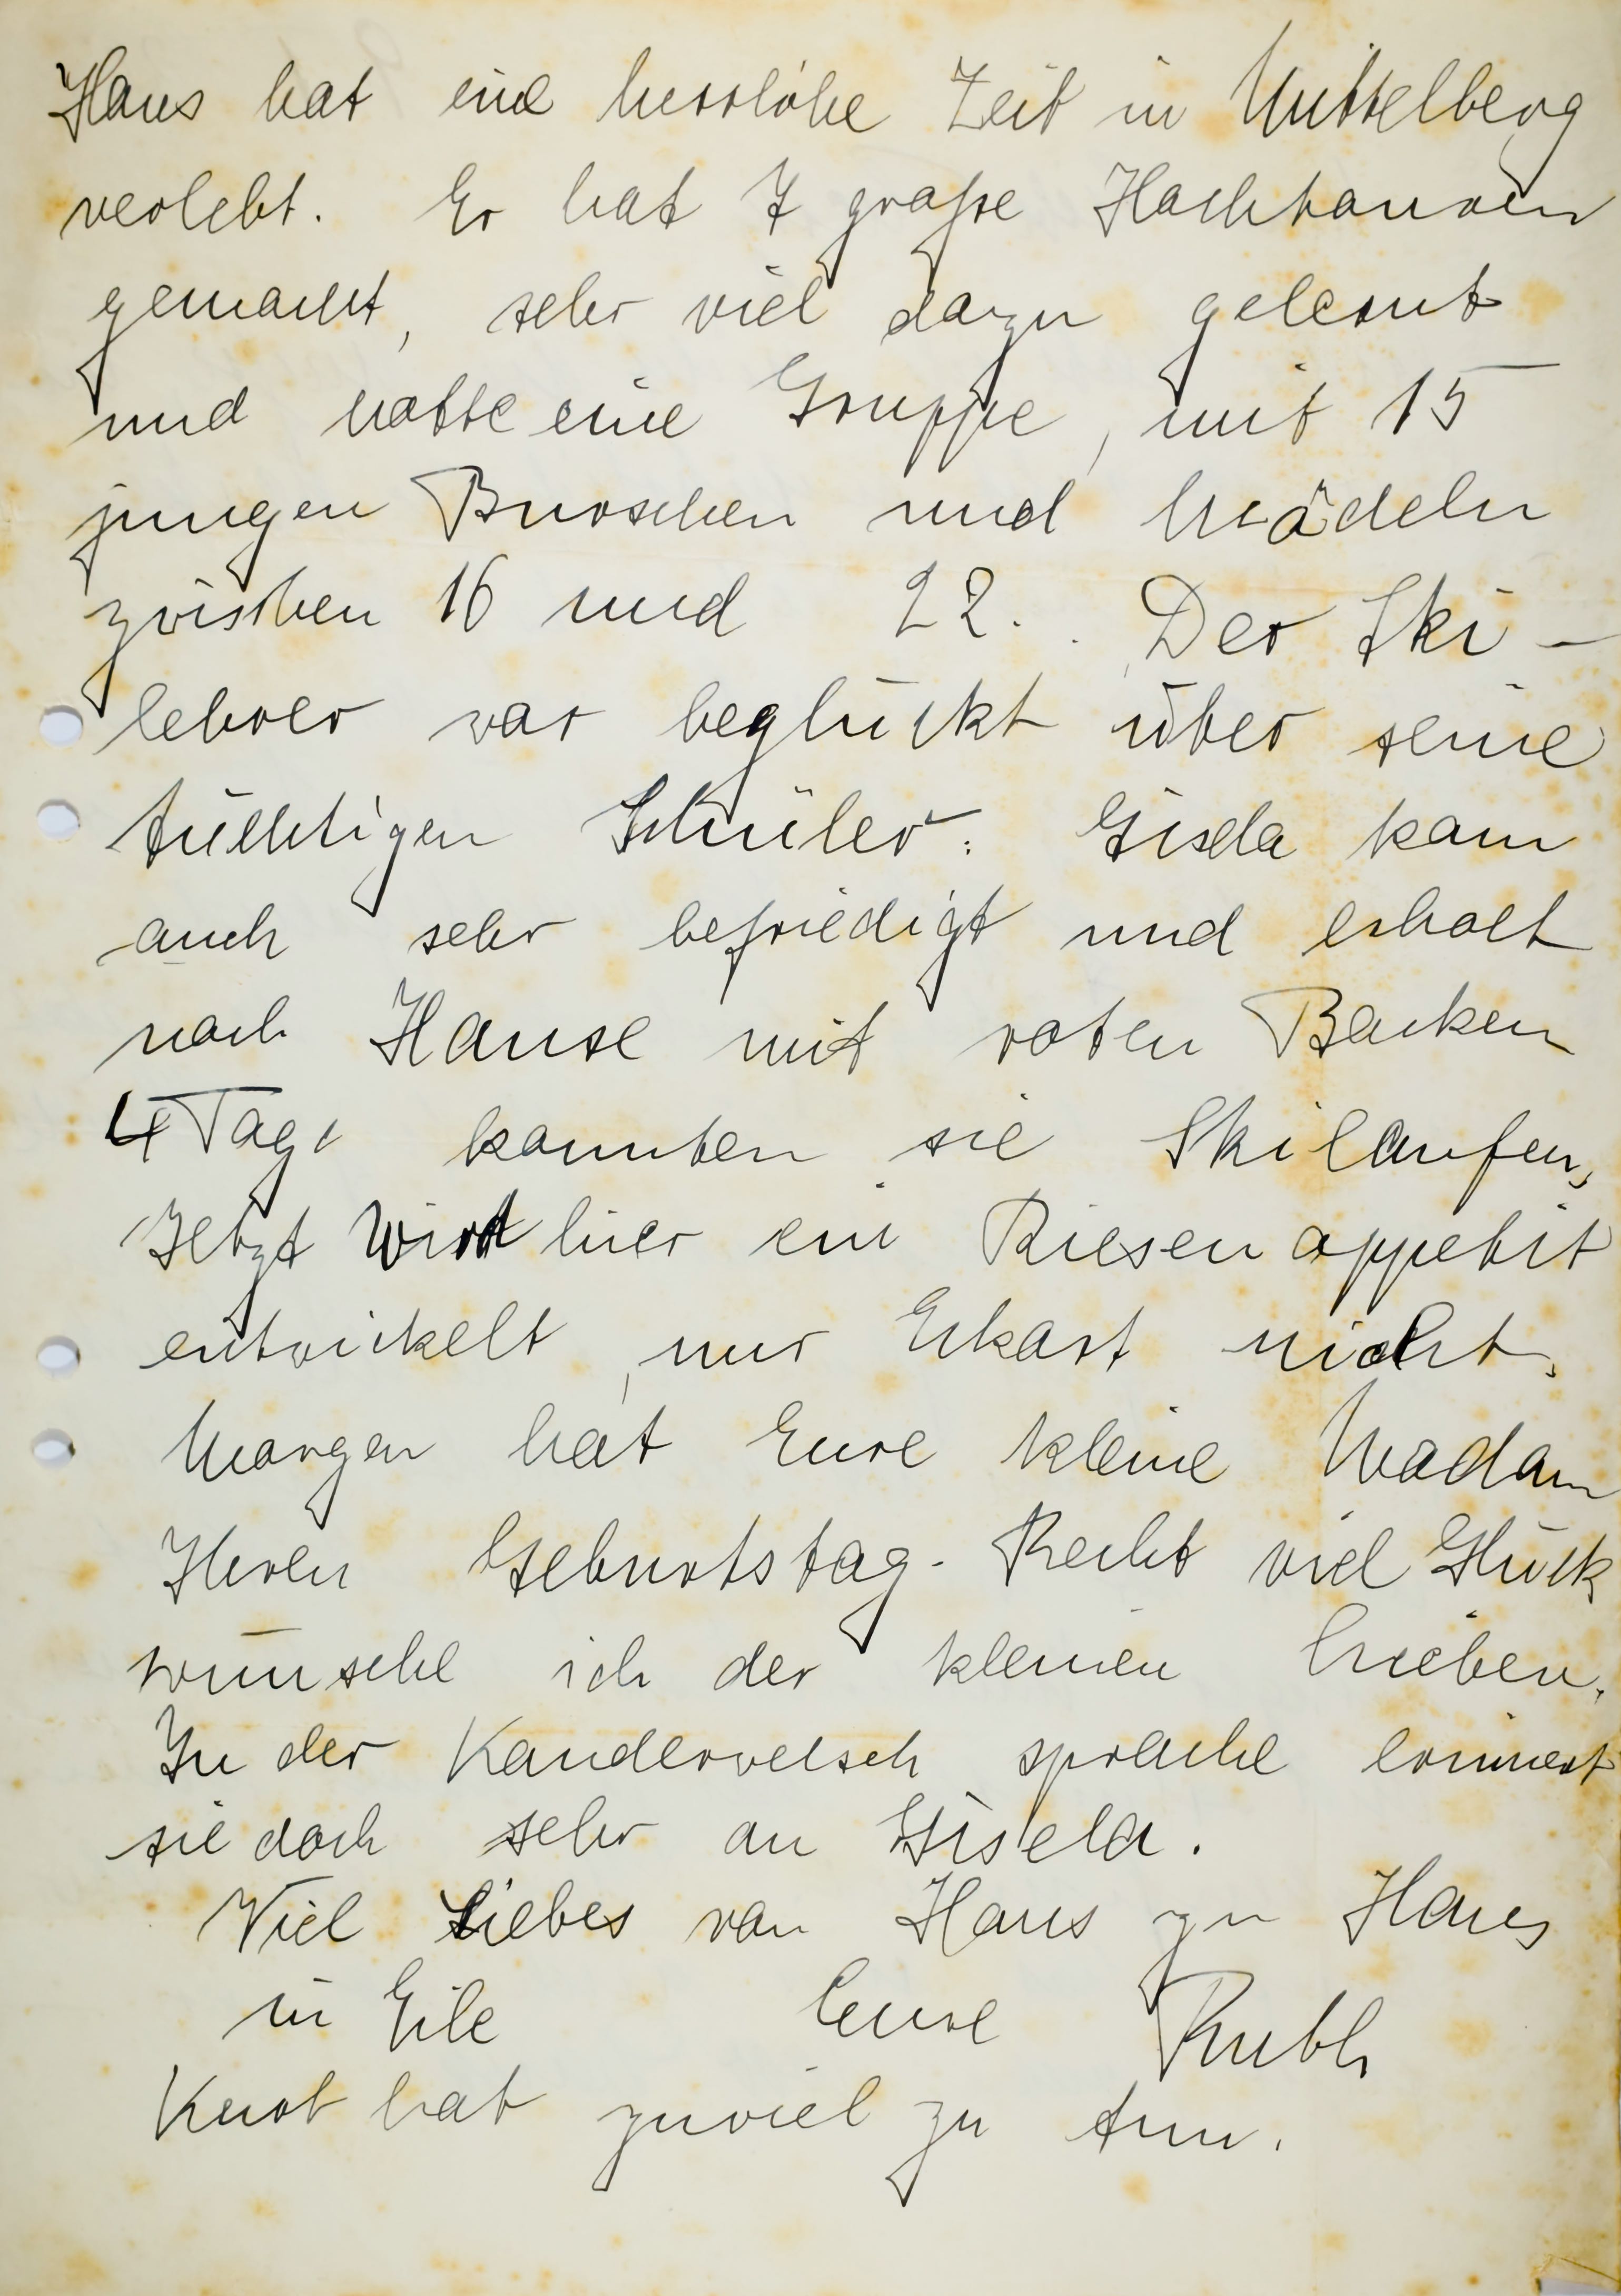 Hans hat eine herrliche Zeit in Mittelberg
verlebt. Er hat 7 große Hochtouren
gemacht, sehr viel dazu gelernt
und hatte eine Gruppe, mit 15
jungen Burschen und Mädeln
zwischen 16 und 22. Der Ski-
lehrer war beglückt über seine
tüchtigen Schüler. Gisela kam
auch sehr befriedigt und erholt
nach Hause mit roten Backen
4 Tage konnten sie Skilaufen,
Jetzt wird hier ein Riesenappetit
entwickelt, nur Eckart nicht.
Morgen hat Eure kleine Madam
Ihren Geburtstag. Recht viel Glück
wünsche ich der kleinen Lieben.
In der Kanderwelsch sprache erinnert
sie doch sehr an Gisela.
Viel Liebes von Haus zu Haus
in Eile Eure Ruth
Kurt hat zuviel zu tun.